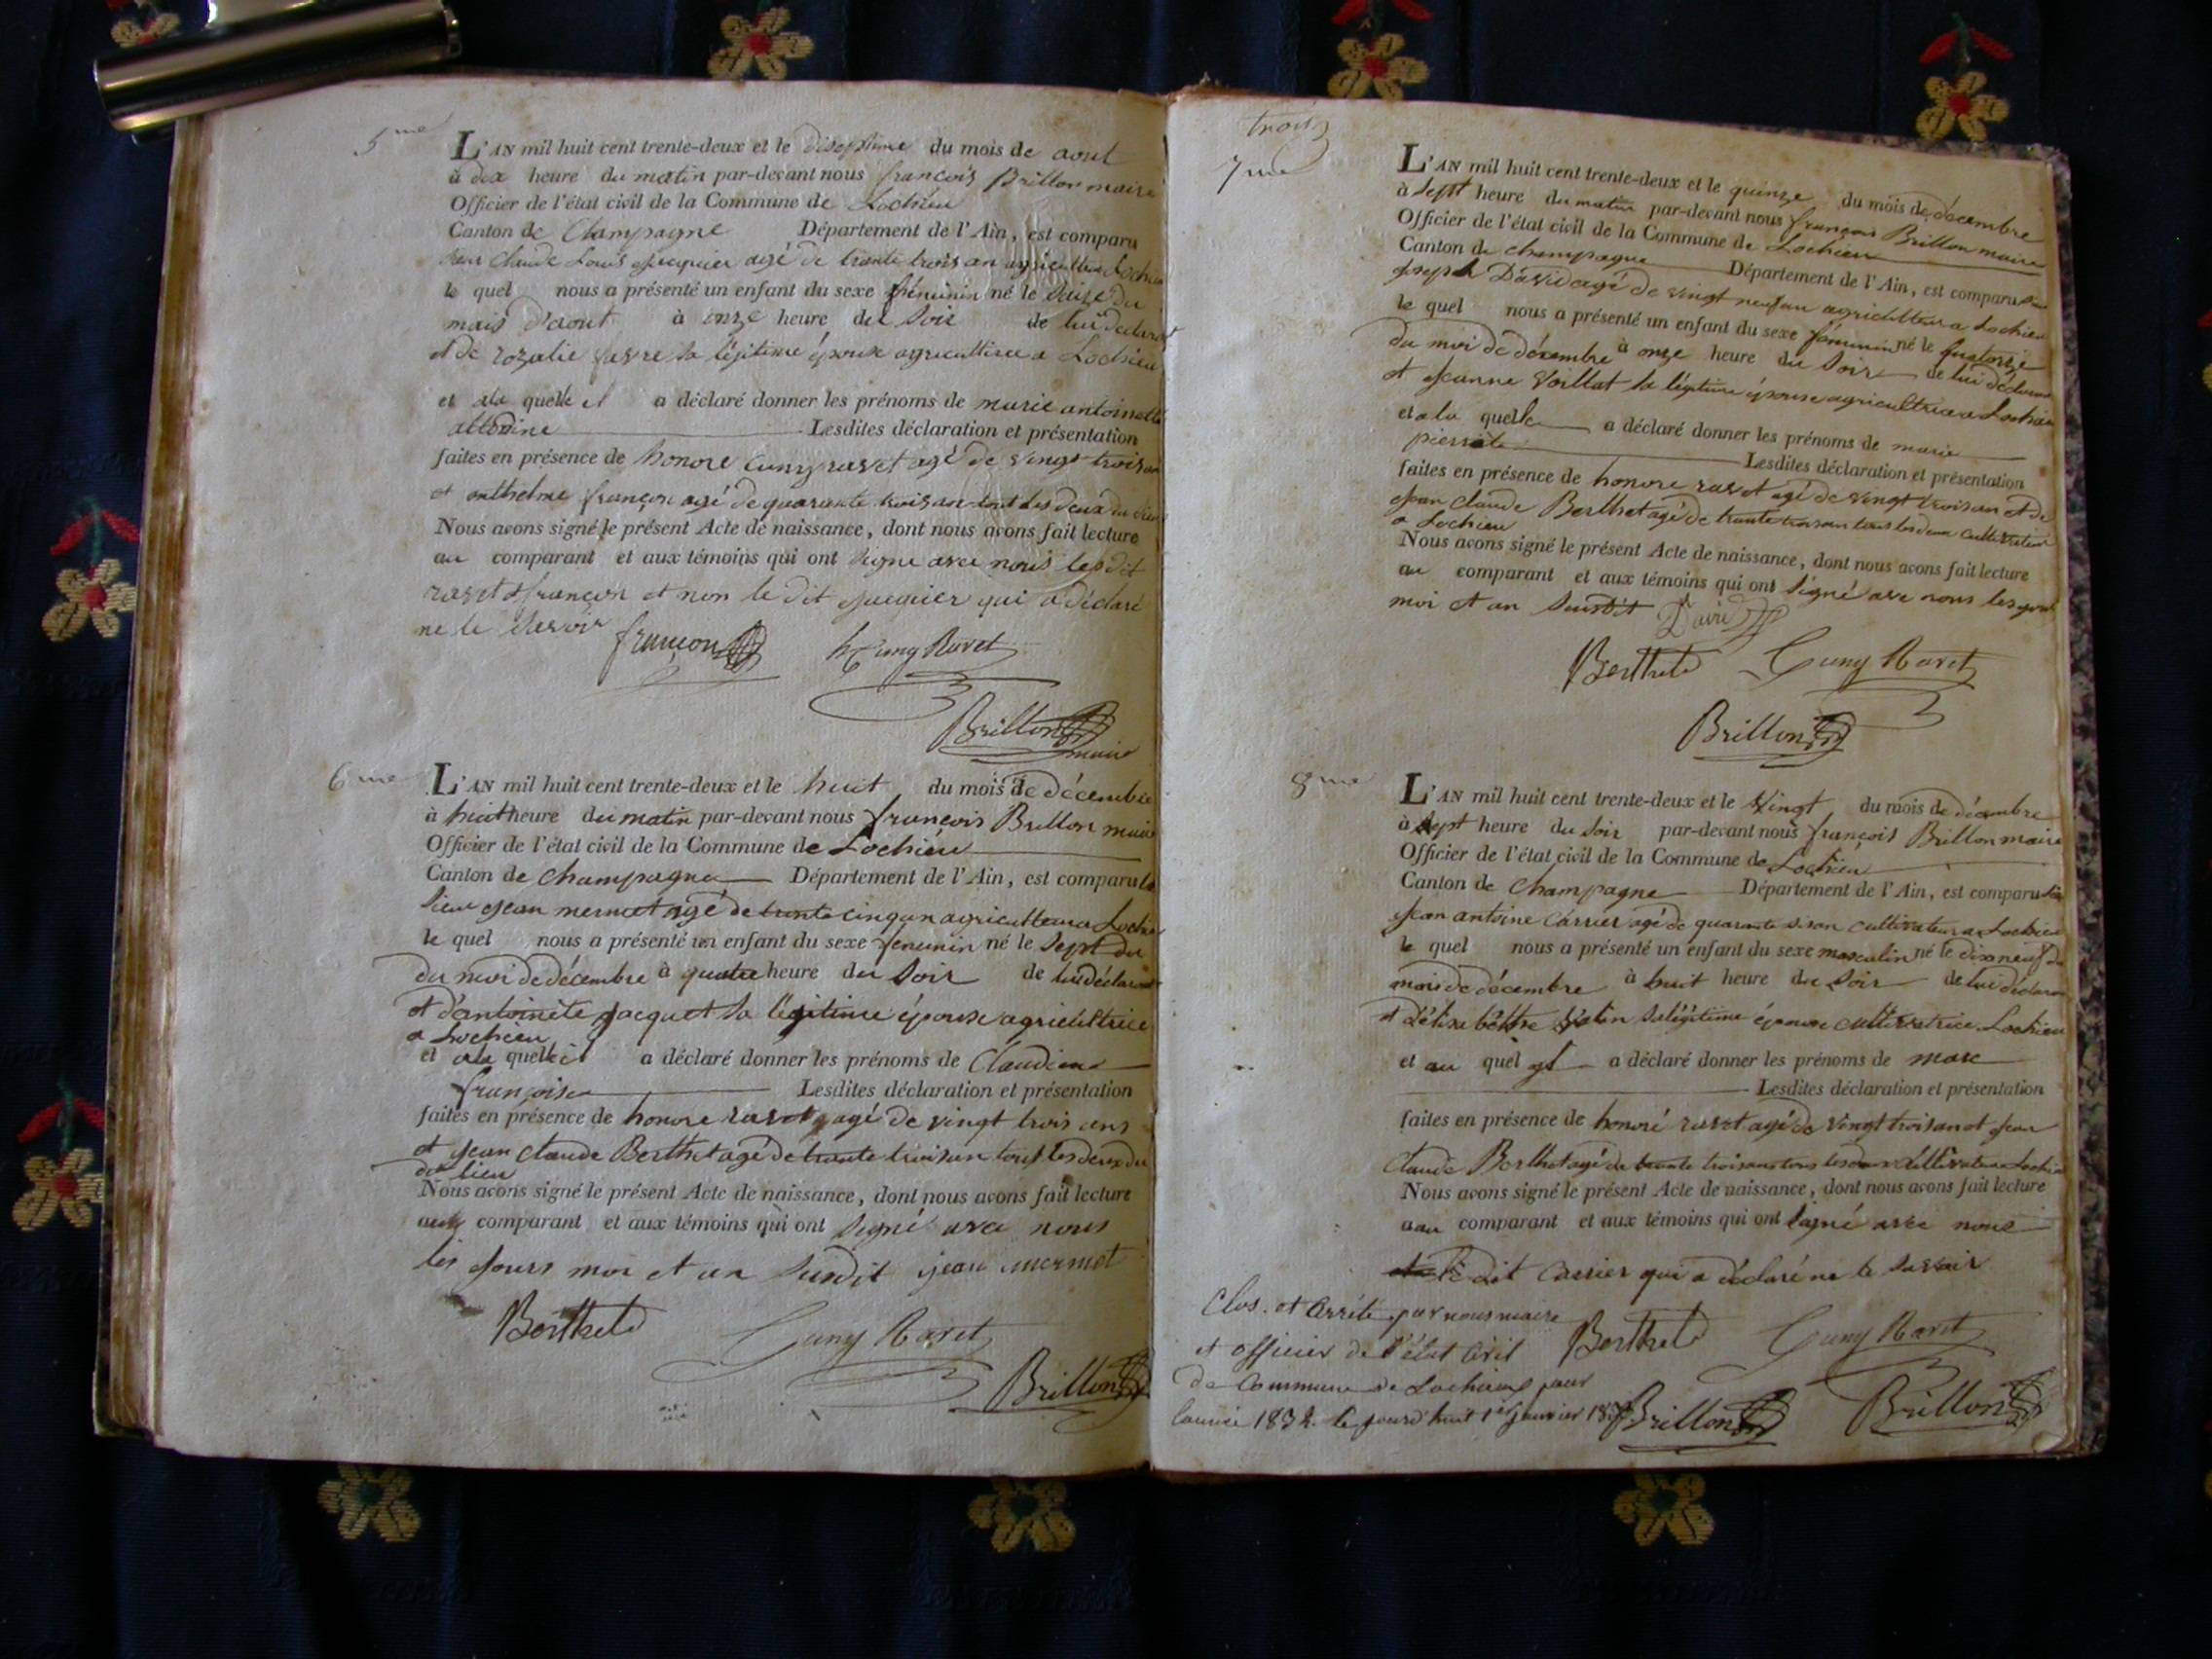 5me
L'AN mil huit cent trente-deux et le diseptime du mois de aout
à dix heure du matin par-devant nous françois Brillon maire
Officier de l'état civil de la Commune de Lochieu
Canton de Champagne Département de l'Ain, est comparu
Claude Louis Jacquier agé de trante trois an agriculteur Lochieu
le quel nous a présenté un enfant du sexe féminin né le saize du
mois d'aout à onze heure du soir de lui déclarant
et de rozalie favre sa légitime épouse agricultrice a Lochieu
et ala quelle il a déclaré donner les prénoms de marie antoinette
Lesdites déclaration et présentation
faites en présence de honore Cuny ravet agé de vingt trois an
et anthelme françon agé de quarante trois an tout les deux du lieu
Nous avons signé le présent Acte de naissance, dont nous avons fait lecture
au comparant et aux témoins qui ont signe avec nous les dit
ravet & françon et non le dit Jacquier qui a déclaré
ne le savoir françon h Cuny Ravet
Brillon
maire
6me
L'AN mil huit cent trente-deux et le huit du mois de décembre
à huit heure du matin par-devant nous françois Brillon maire
Officier de l'état civil de la Commune de Lochieu
Canton de Champagne Département de l'Ain, est comparu le
sieur Jean mermet agé de trante cinq an agriculteur a Lochieu
le quel nous a présenté un enfant du sexe fénimin né le sept du
du moi de décembre à quatre heure du soir de lui déclarant
et d'antoinète jacquet sa légitime épouse agricultrice
a Lochieu
et ala quelle il a déclaré donner les prénoms de Claudine
françoise Lesdites déclaration et présentation
faites en présence de honore ravet agé de vingt trois ans
et Jean Claude Berthet agé de trante trois an tout les deux du
dit lieu
Nous avons signé le présent Acte de naissance, dont nous avons fait lecture
aux comparant et aux témoins qui ont signé avec nous
les jours moi et an susdit jean mermet
Berthet Cuny Ravet
Brillon
trois
7me
L'AN mil huit cent trente-deux et le quinze du mois de décembre
à sept heure du matin par-devant nous françois Brillon maire
Officier de l'état civil de la Commune de Lochieu
Canton de champagne Département de l'Ain, est comparu sieur
Joseph David agé de vingt neuf an agriculteur a Lochieu
le quel nous a présenté un enfant du sexe féminin né le quatorze
du moi de décembre à onze heure du soir de lui déclarant
et Jeanne Voillat sa légitime épouse agricultrice a Lochieu
et a la quelle a déclaré donner les prénoms de marie
pierrete Lesdites déclaration et présentation
faites en présence de honore ravet agé de vingt trois an et de
Jean Claude Berthet agé de trante trois an tous les deux cultivateur
a Lochieu
Nous avons signé le présent Acte de naissance, dont nous avons fait lecture
au comparant et aux témoins qui ont signé avec nous les jour
moi et an susdit David
Berthet Cuny Ravet
Brillon
8me
L'AN mil huit cent trente-deux et le vingt du mois de décembre
à sept heure du soir par-devant nous françois Brillon maire
Officier de l'état civil de la Commune de Lochieu
Canton de Champagne Département de l'Ain, est comparu sieur
Jean antoine Carrier agé de quarante six an cultivateur a Lochieu
le quel nous a présenté un enfant du sexe masculin né le dix neuf du
mois de décembre à huit heure du soir de lui déclarant
et sa légitime épouse cultivatrice Lochieu
et au quel yl a déclaré donner les prénoms de marc
Lesdites déclaration et présentation
faites en présence de honoré ravet agé de vingt trois an et Jean
Claude Berthet agé de trante trois ans tous les deux cultivateur a Lochieu
Nous avons signé le présent Acte de naissance, dont nous avons fait lecture
au comparant et aux témoins qui ont signé avec nous
le dit Carrier qui a déclaré ne le savoir
Clos et Arrété par nous maire
et officier de l'état civil Berthet Cuny Ravet
de Commune de Lochieu pour
l'année 1832 le jourd'huit 1er janvier Brillon Brillon